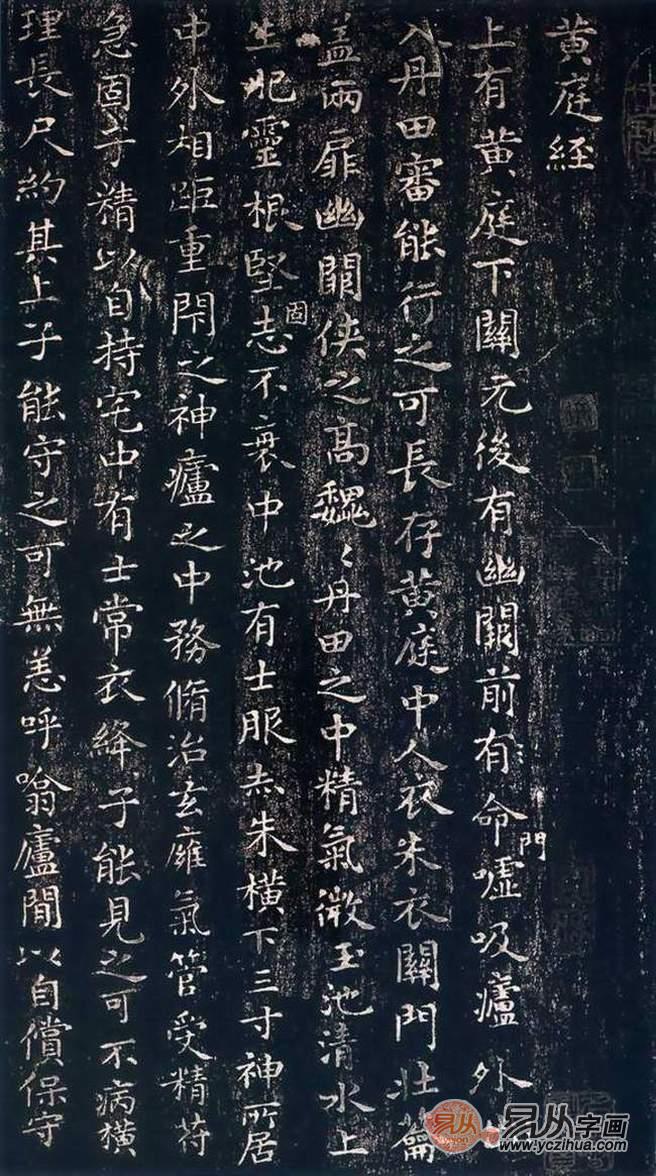 黄庭經
上有黄庭下關元後有幽闕前有命門嘘吸廬外
入丹田審能行之可長存黄庭中人衣朱衣關門壯籥
盖兩扉幽闕俠之高巍〻丹田之中精氣微玉池清水上
生肥靈根堅固志不衰中池有士服赤朱橫下三寸神所居
中外相距重閇之神廬之中務脩治玄㢕氣管受精苻
急固子精以自持宅中有士常衣絳子能見之可不病橫
理長尺約其上子能守之可無恙呼噏廬間以自償保守
易从字画
www.yczihua.com